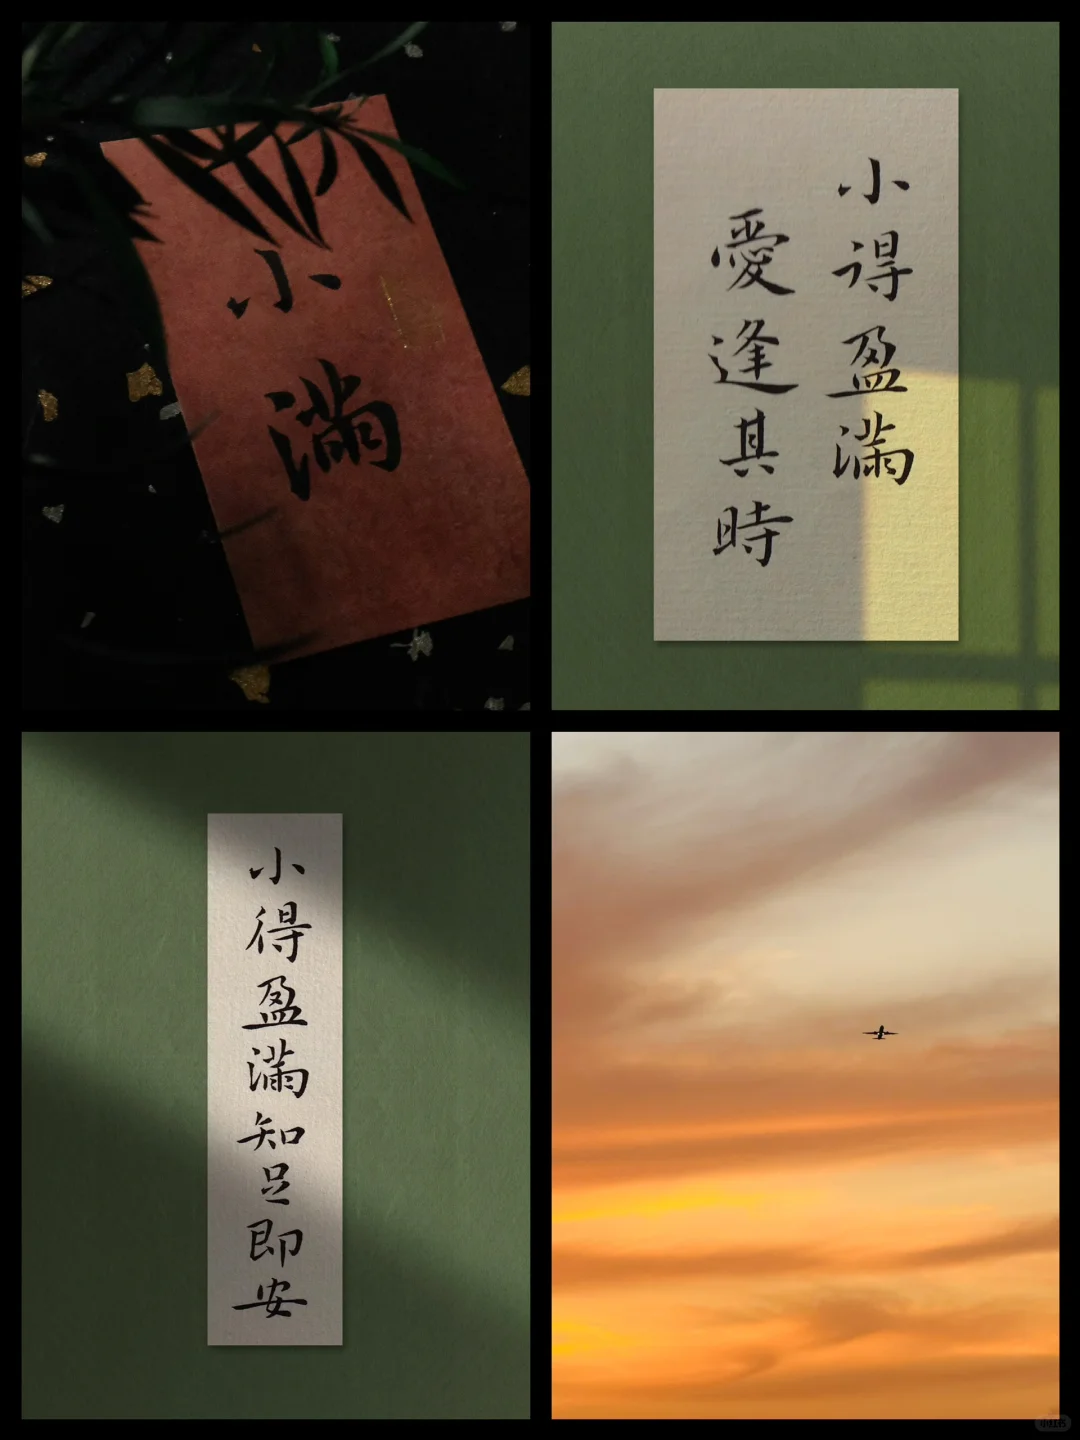 小滿
小得盈滿
愛逢其時
小得盈滿知足即安